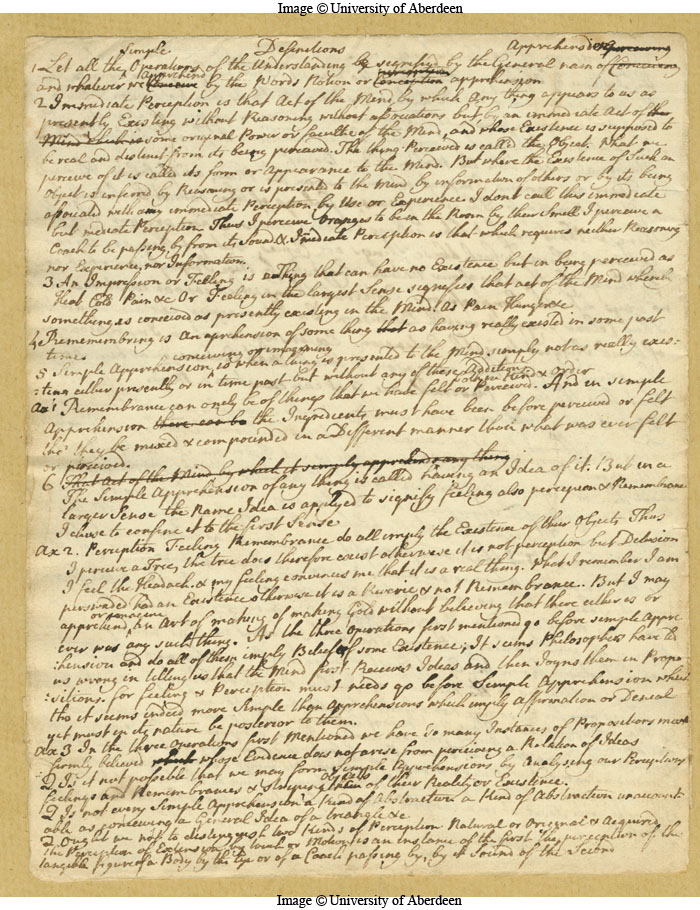 Image © University of Aberdeen
Simple Definitions Apprehension perceiving
1 Let all the Operations of the Understanding be signified by the General name of Conceiving
and whatever we Apprehend Conceive by the Words Notion or Conception apprehension
2 Immediate Perception is that Act of the Mind by which any thing appears to us as
presently Existing without Reasoning without associations but by an immediate Act of the
Mind which is some original Power or faculty of the Mind, and whose Existence is supposed to
be real and distinct from its being perceived. The thing Perceived is called the Object. What we
perceive of it is called its form or Appearance to the Mind. But where the Existence of such an
Object is inferred by Reasoning or is presented to the Mind by information of others or by its being
associated with any immediate Perception by Use or Experience I dont call this immediate
but mediate Perception. Thus I perceive oranges to be in the Room by their Smell I perceive a
Coach to be passing by from its Sound & Imediate Perception is that which requires neither Reasoning
nor Experience, nor Information.
3 An Impression or Feeling is a thing that can have no Existence but in being perceived as
Heat Cold Pain &c Or Feeling in the largest Sense signifies that act of the Mind wherein
something is conceived as presently existing in the Mind as Pain Hunger &c
4 Remembring is An aprhension of some thing that as having really existed in some past
time.
conceiving or imagining
5 Simple Apprehension is when a thing is presented to the Mind simply not as really exis-
-ting either presently or in time past but without any of these Additions
Kind & order
Ax 1 Remembrance can onely be of things that we have felt or perceived. And in simple
Apprehension there can be the Ingredients must have been before perceived or felt
tho' they be mixed & compounded in a Different manner than what was ever felt
or perceived.
6 That Act of the Mind by which it simply apprehends any thing
The Simple Apprehension of any thing is called having an Idea of it. But in a
larger Sense the Name Idea is applyed to signify feeling also perception & Remembrance
I chuse to confine it to the first Sense
Ax 2. Perception Feeling Remembrance do all imply the Existence of their Object, Thus
I perceive a Tree, the tree does therefore exist otherwise it is not perception but Delusion
I feel the Headach & my feeling convinces me that it is a real thing. What I remember I am
persuaded had an Existence otherwise it is a Reverie & not Remembrance. But I may
or imagine
apprehend an Art of making of making Gold without believing that there either is or
ever was any such thing. As the three Operations first mentioned go before simple Appre
-hension and do all of them imply Belief of some Existence; It seems Philosophers have led
us wrong in telling us that the Mind first Receives Ideas and then Joyns them in Propo
-sitions. for feeling & Perception must needs go before Simple Apprehension which
tho it seems indeed more Simple than Apprehensions which imply affirmation or Denial
yet must in its nature be posterior to them.
Ax 3 In the three Operations first Mentioned we have so many Instances of Propositions most
firmly believed which whose Evidence does not arise from perceiving a Relation of Ideas
Q Is it not possible that we may form Simple Apprehensions by Analysing our Perceptions
Objects
feelings and Remembrances & stripping them of their Reality or Existence.
Q Is not every Simple Apprehension a Kind of Abstraction a Kind of Abstraction unaccount
able as conceiving a General Idea of a triangle &c
Q Ought we not to distinguish two Kinds of Perception Natural or Original & Acquired
The Perception of Extension by touch or Motion is an instance of the first the perception of the
tangible figure of a Body by the Eye or of a Coach passing by, by its Sound of the Second
Image © University of Aberdeen